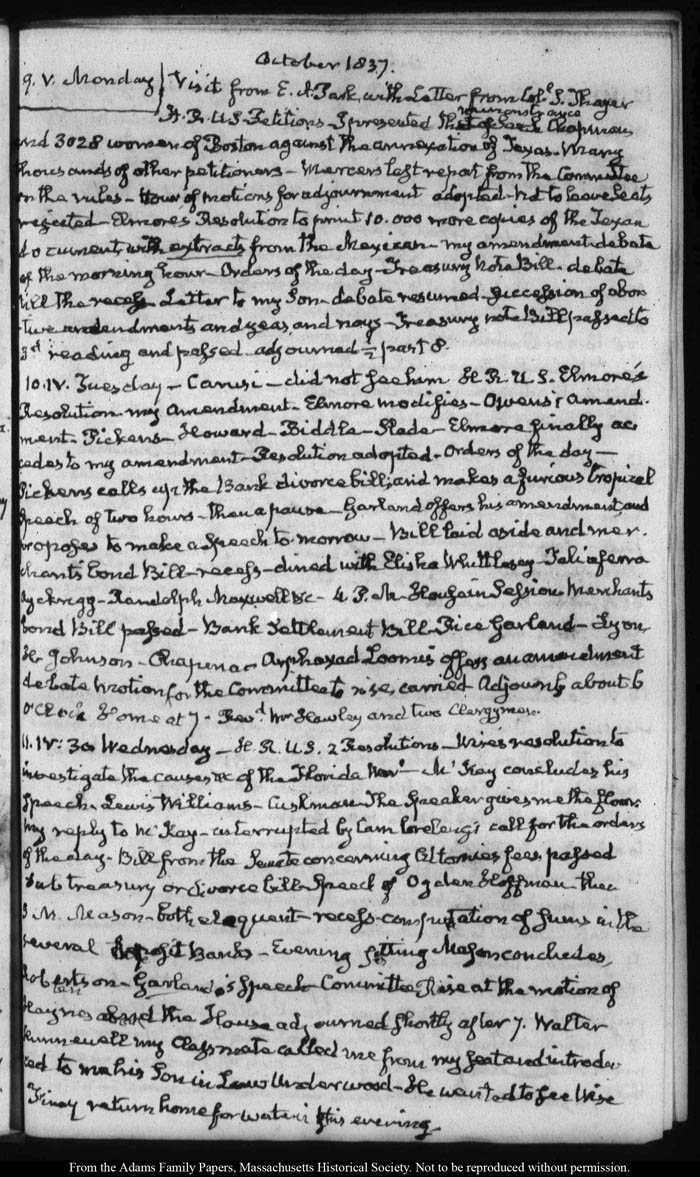 October 1837.
9. V. Monday Visit from E. A. Park, with Letter from Col. S. Thayer
remonstrance
H. R. U.S. Petitions. I presented the of Chapman
and 3028 women of Boston against the annexation of Texas. Many
thousands of other petitioners - Mercer's last report from the Committee
on the rules - Hour of motions for adjournment adopted - not to leave Seats
rejected - Elmore's Resolution to print 10.000 more copies of the Texan
documents with extracts from the Mexican - my amendment debate
of the morning hour - Orders of the day - Treasury note Bill. debate
till the recess Letter to my Son - debate resumed - Succession of abor
tive amendments and yeas, and nays - Treasury note Bill passed to
3d. reading and passed adjourned ½ past 8.
10. IV. Tuesday - Carusi - did not see him H. R. U. S. Elmore's
Resolution my amendment. Elmore modifies - Owens's amend.
ment. Pickens - Howard - Biddle - Slade - Elmore finally ac
cedes to my amendment - Resolution adopted. Orders of the day -
Pickens calls up the Bank divorce bill, and makes a furious tropical
speech of two hours - then a pause - Garland offers his amendment and
proposes to make a speech to-morrow - Bill laid aside and mer.
chants bond Bill - recess - dined with Elisha Whittlesey - Taliaferro
Randolph Maxwell &c - 4 P. M. House in Session Merchants
bond Bill passed - Bank Settlement Bill Rice Garland - Lyon
H. Johnson - Chapman Arphaxad Loomis offers an amendment
debate Motion for the Committee to rise, carried Adjourned about 6
o'Clock Home at 7. Revd. Mr Hawley and two Clergymen.
11. IV: 30 Wednesday - H. R. U.S. 2 Resolutions - Wise's resolution to
investigate the causes &c of the Florida War - McKay concludes his
Speech. Lewis Williams - Cushman The Speaker gives me the floor
my reply to McKay - interrupted by Cambreleng's call for the orders
of the day - Bill from the Senate concerning Attornies fees, passed
Sub treasury or divorce bill Speech of Ogden Hoffman then
J. M. Mason - both eloquent - recess - computation of sums in the
several deposit Banks - Evening sitting Mason concludes,
Robertson - Garland's Speech Committee Rise at the motion of
Haynes and the House adjourned shortly after 7. Walter
Hunnewell my Classmate called me from my seat and introdu
ced to me his Son in Law Underwood - He wanted to see Wise
I may return home for water this evening.
From the Adams Family Papers, Massachusetts Historical Society. Not to be reproduced without permission.